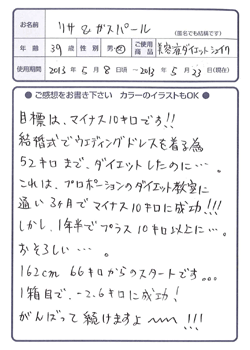 お名前 リサ&ガスパール
(匿名でも結構です)
年齢 39歳 性別 男・女 ご使用商品 美容痩ダイエットシェイク
使用期間 2013年5月8日頃 〜 2013年5月23日(現在)
●ご感想をお書き下さい カラーのイラストもOK●
目標は、マイナス10キロです!!
結婚式でウエディングドレスを着る為
52キロまで、ダイエットしたのに…。
これは、プロポーションのダイエット教室に
通い3ヶ月でマイナス10キロに成功!!!
しかし、1年半でプラス10キロ以上に…。
おそろしい…。
162cm 66キロからのスタートです。。。
1箱目で、-2.6キロに成功!
がんばって続けますよ〜〜!!!